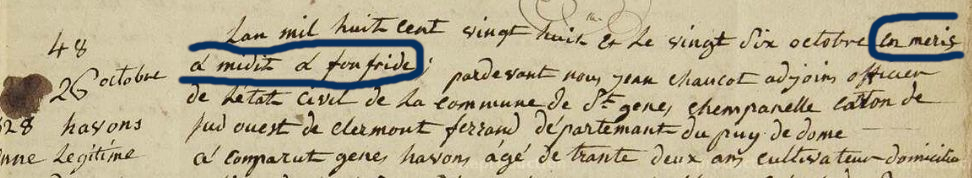 Lan mil huit cent vingt huit et le vingt six octobre en meris
48
a midit a fonfride; pardevant nous jean chaucot adjoins officier
26 octobre
de letat civil de la commune de St genes chempanelle caton de
28 havons
sud ouest de clermont ferrand départemant du puy de dome
nne Legitime
a comparut genes havons âgé de trante deux ans cultivateur domicilié